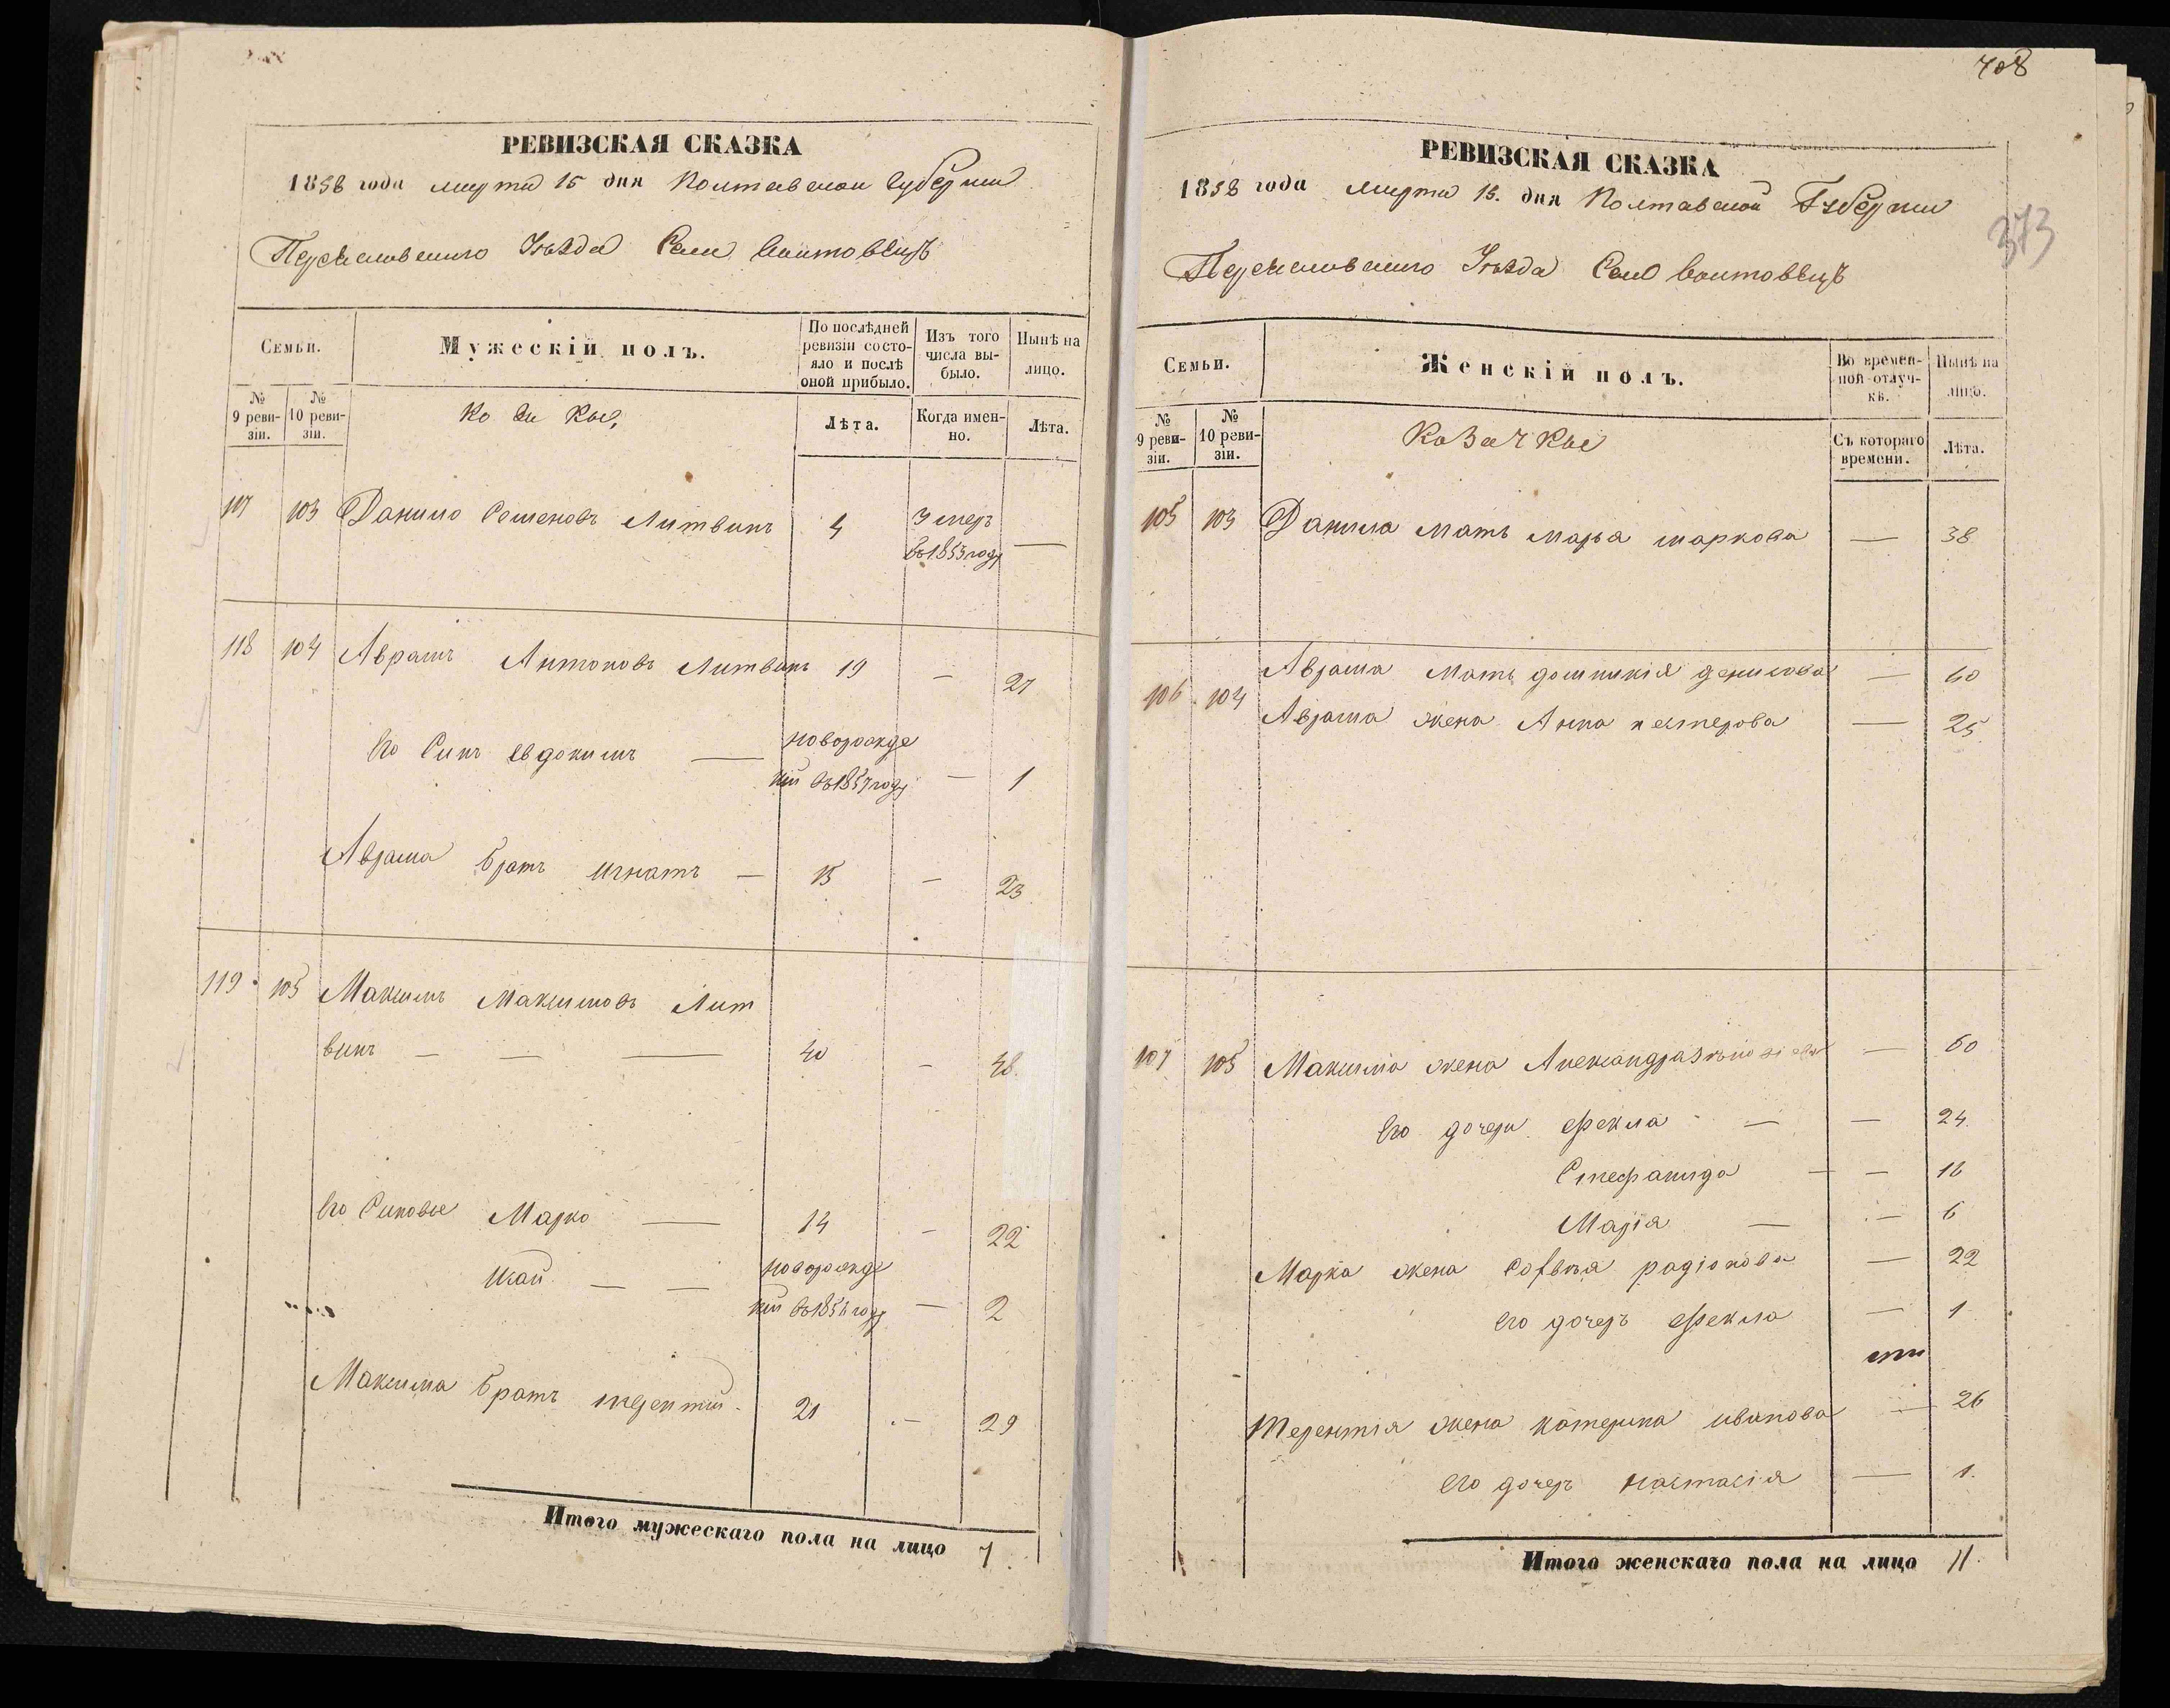 РЕВИЗСКАЯ СКАЗКА
1858 года марта 15 дня Полтавской Губернии
Переяславскаго Уезда Села Воитовецъ
Семьи.
Мужескій полъ.
По послѣдней ревизіи состояло и послѣ оной прибыло.
Изъ того числа выбыло.
Нынѣ на лицо.
№ 9 ревизіи.
№ 10 ревизіи.
Козаки,
Лѣта.
Когда именно.
Лѣта.
117 103 Данило Семеновъ Литвинъ 4 Умеръ —
въ 1853 году
118 104 Аврамъ Антоновъ Литвинъ 19 — 27
Его Синъ Евдокимъ — новорожде
ний въ 1857 году — 1
Аврама братъ Игнатъ — 15 — 23
119 105 Максимъ Максимовъ Лит
винъ — — — 40 — 48
Его Синовье Марко — 14 — 22
Исай — — новорожде
ний въ 1856 году — 2
Максима братъ терентий 21 — 29
Итого мужескаго пола на лицо 7.
408
373
РЕВИЗСКАЯ СКАЗКА
1858 года марта 15. дня Полтавской Губернии
Переяславскаго Уезда Села Воитовецъ
Семьи.
Женскій полъ.
Во временной отлучкѣ.
Нынѣ на лицо.
№ 9 ревизіи.
№ 10 ревизіи.
Козачкы
Съ котораго времени.
Лѣта.
105 103 Данила мать марья маркова — 38
Аврама мать домникія денисова — 60
106 104 Аврама жена Анна нестерова — 25
107 105 Максима жена Александра — 50
Его дочери Фекла — — 24
Стефанида — — 16
Марія — — 6
Марка жена Софья радіонова — 22
его дочеръ Фекла — 1
Терентія жена катерина иванова — 26
его дочеръ настасія — 1.
Итого женскаго пола на лицо 11.